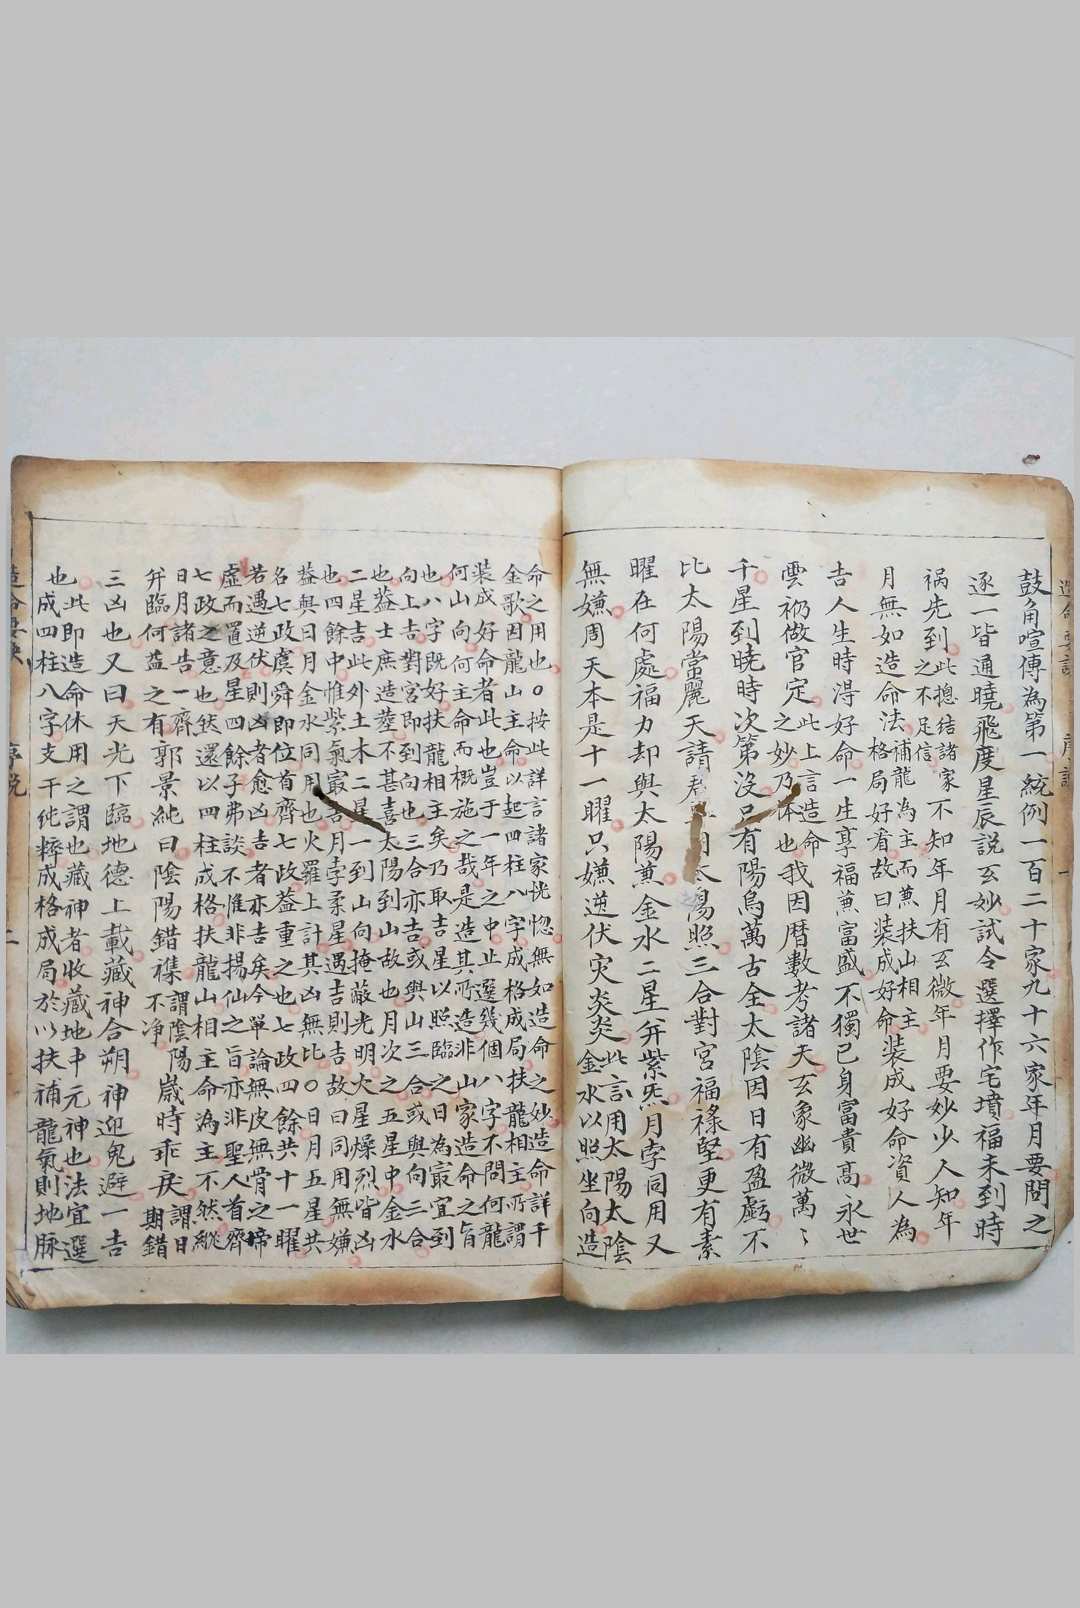 鼓角喧傳為第一統例一百二十家九十六家年月要問之
逐一皆通曉飛度星辰說玄妙試令選擇作宅墳福未到時
禍先到此揔結諸家之不足信不知年月有玄微年月要妙少人知年
月無如造命法補龍為主而兼扶山相主格局好者故曰裝成好命裝成好命資人為
吉人生時淂好命一生享福兼富盛不獨已身富貴高永世
雲礽做官定此上言造命之妙乃体也我因曆數考諸天玄象幽微萬〻
千星到曉時次第沒只有陽烏萬古全太陰因日有盈虧不
比太陽常麗天請君太陽照三合對宮福祿堅更有素
曜在何處福力却與太陽兼金水二星并紫炁月孛同用又
無嫌周天本是十一曜只嫌逆伏灾炎炎此言用太陽太陰金水以照坐向造
命之用也○按此詳言諸家恍惚無如造命之妙造命詳千
金歌因龍山主命以起四柱八字成格成局扶龍相主所謂
裝成好命者此也豈于一年之中止選幾個八字不問何龍
何山何向何主命而概施之哉是造其所造非山家造命之旨
也八字既好扶龍相主矣乃取吉星以照臨之日為寂宜到
向上吉對宮即到向也三合亦吉或與山三合或與向三合
也蓋士庶造塟不甚喜太陽到山故也月次之五星中金水
二星吉此外土木二星一到山向掩蔽光明火星燥烈皆凶
也四餘中惟紫氣寂吉月孛柔星遇吉則吉故曰同用無嫌
蓋與日月金水同用也火羅上計其凶無比○日月五星共
名七政虞舜即位首齊七政蓋重之也七政四餘共十一曜
若遇逆伏則凶者愈凶吉者亦吉矣今單論無皮無骨之禘
虛而置及星四餘子弗談不惟非揚仙之旨亦非聖人者齊
七政之意也然還以四柱成格扶龍山相主命為主不然縱
日月諸吉一齊
弁臨何益之有郭景純曰陰陽錯襍謂陰陽不凈歲時乖戾謂日期錯
三凶也又曰天光下臨地德上載藏神合朔神迎鬼避一吉
也此即造命休用之謂也藏神者收藏地中元神也法宜選
成四柱八字支干純粹成格成局於以扶補龍氣則地脉